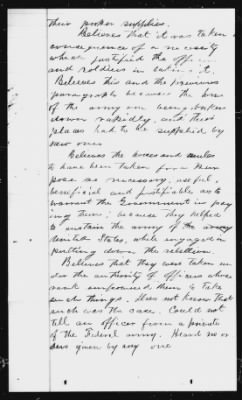 their proper supplies.
Believes that it was taken
consequence of a necessity
which justified the offi
and soldiers in taking it.
Believes this and the previous
paragraph because the horses
of the army were being broken
down rapidly, and their
places had to be supplied by
new ones
Believes the horses and mules
to have been taken for a
pose so necessary, useful,
beneficial and justifiable as to
warrant the Government in pay
ing them; because they helped
to sustain the army of the
United States, while engaged in
putting down the rebellion.
Believes that they were taken un
der the authority of officers whose
rank empowered them to take
such things. Does not know that
such was the case. Could not
tell an officer from a private
of the Federal army. Heard no or
ders given by any one